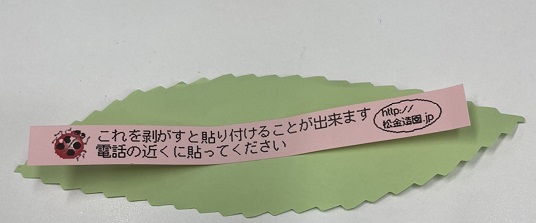 これを剥がすと貼り付けることが出来ます
電話の近くに貼ってください
http://
松金造園.jp